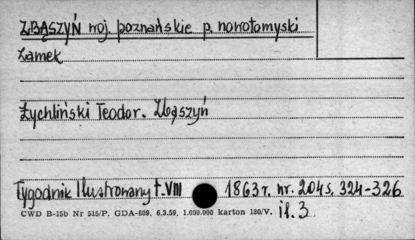 ZBĄSZYŃ woj. poznańskie p. nowotomyski
zamek
Żychliński Teodor. Zbąszyń
Tygodnik Ilustrowany t. VIII 1863 r. nr. 204 s. 324-326
il. 3
CWD B-15b Nr 515/P. GDA-809. 6.3.59. 1.000.000 karton 180/V.